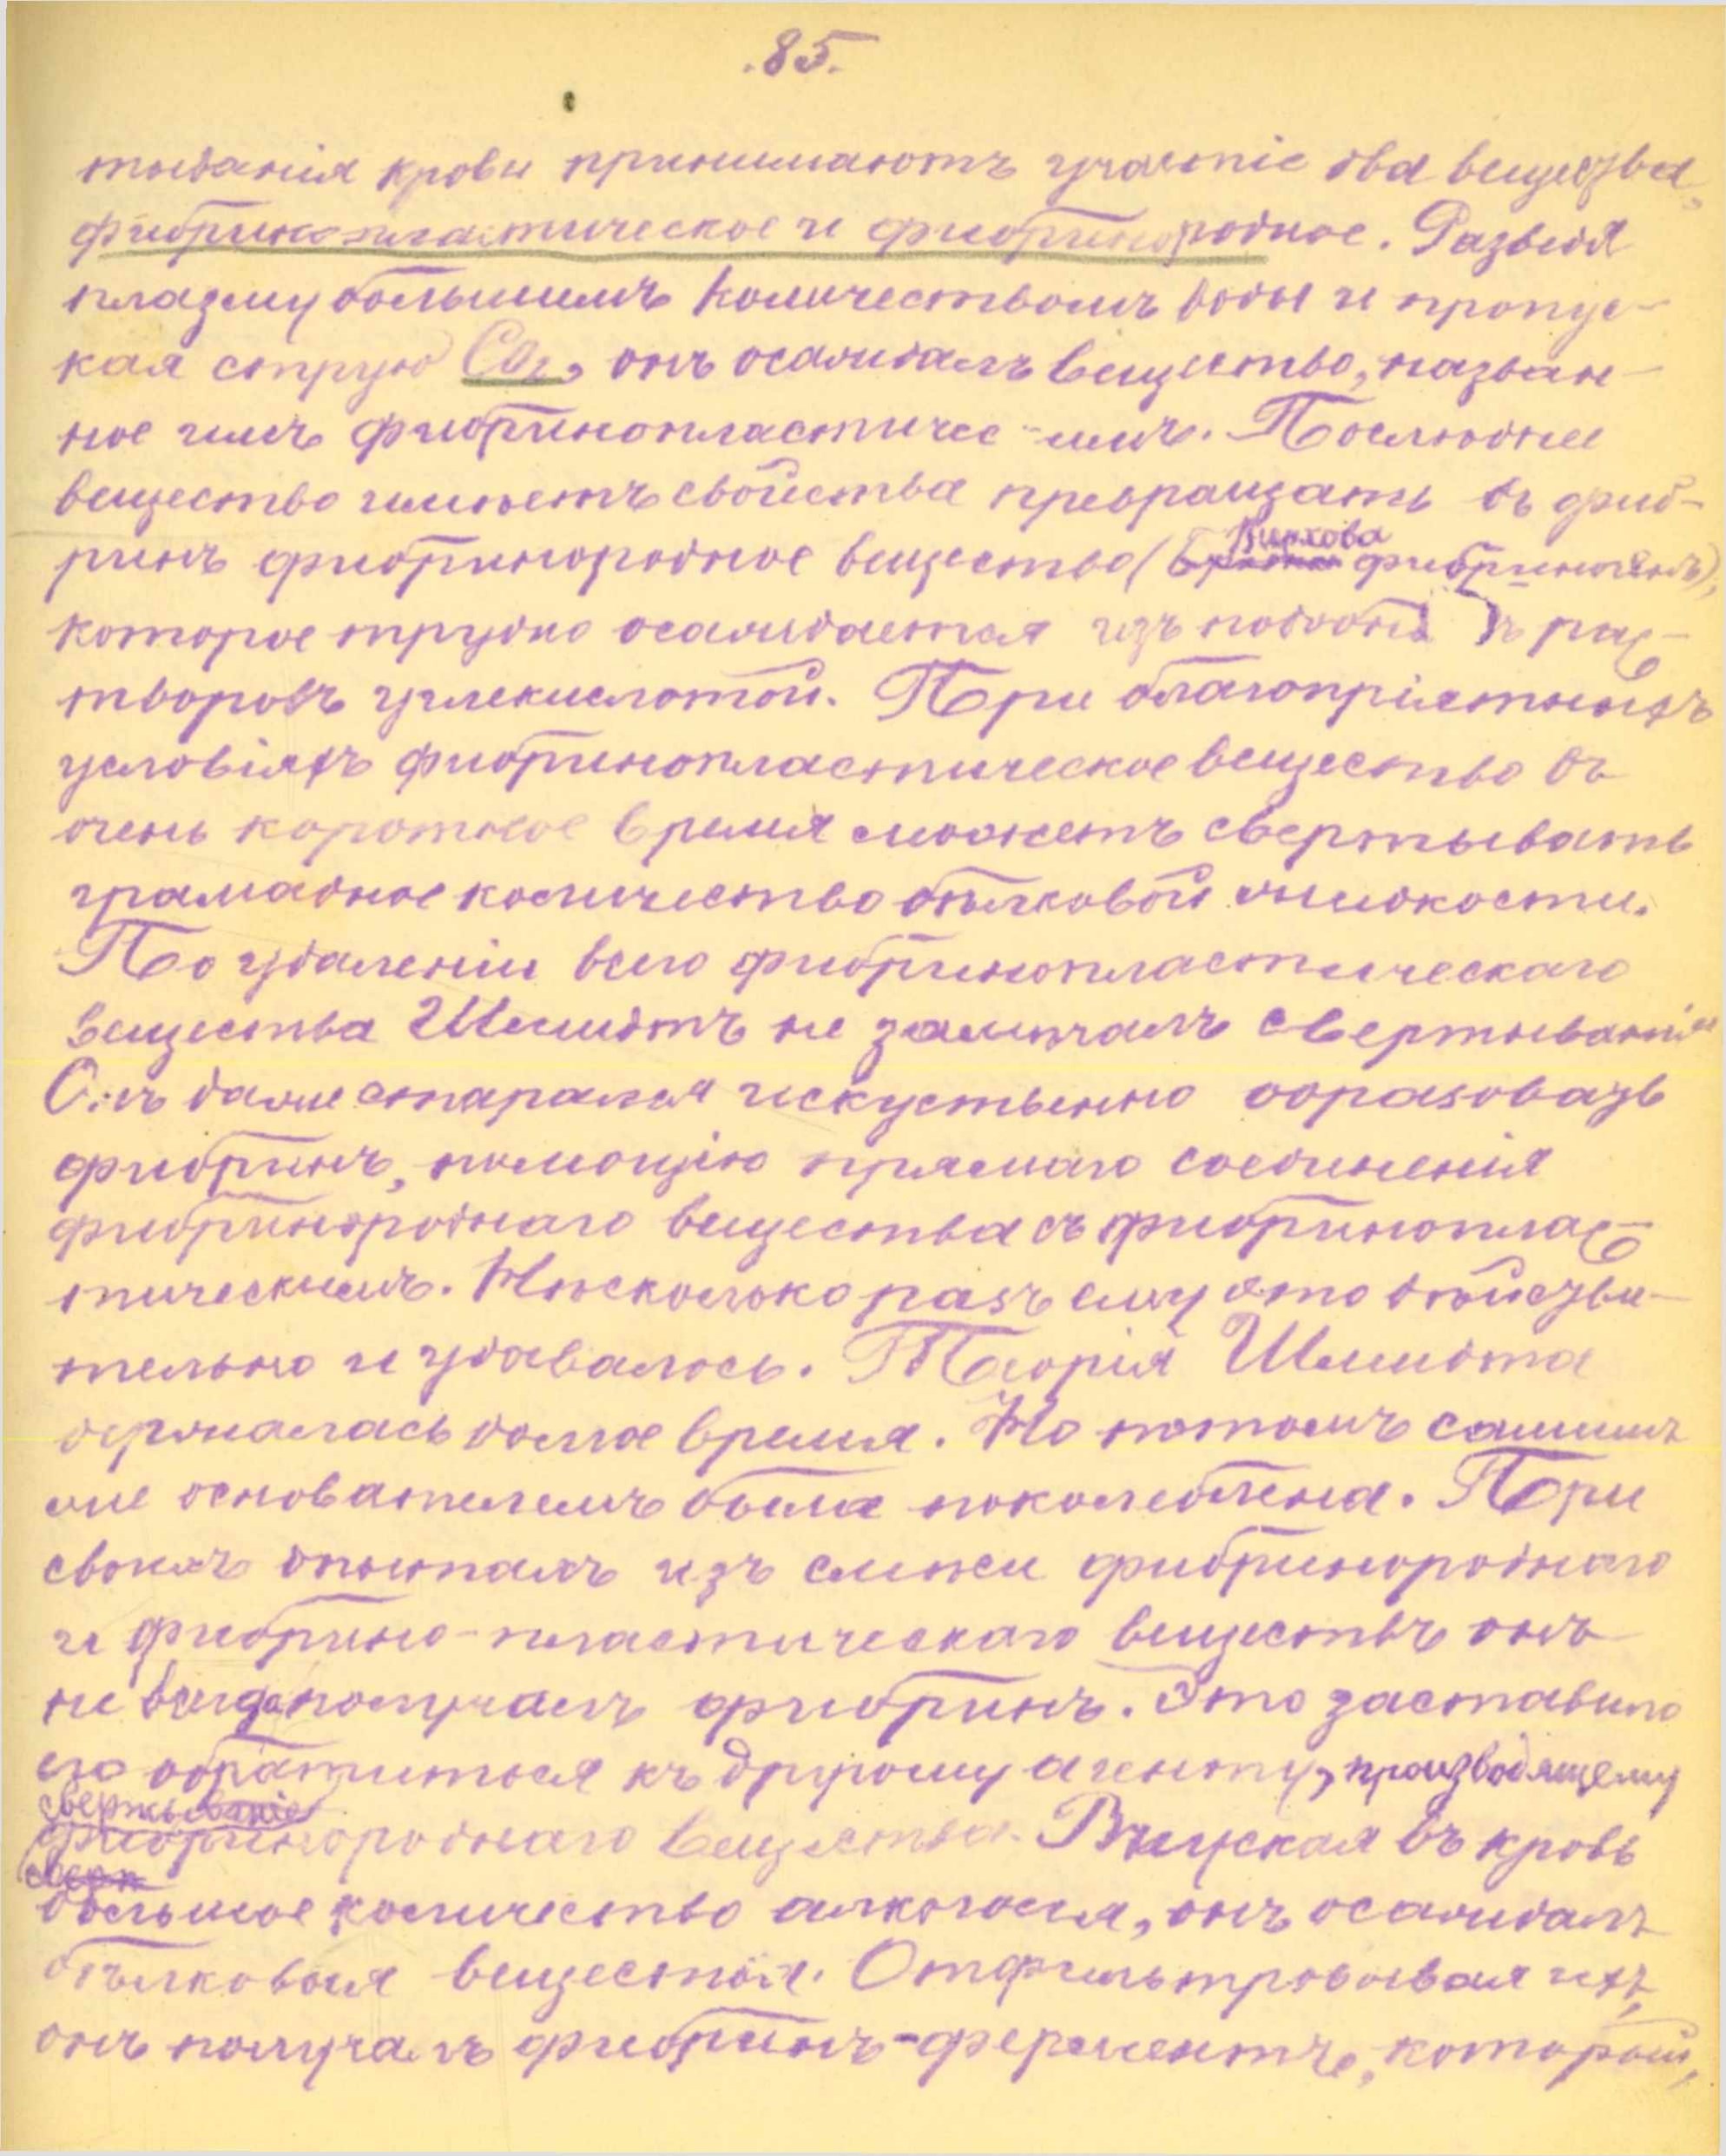 .85.
тыванія крови принимаютъ участіе два вещества,
фибрино-пластическое и фибринородное. Разведя
плазму большимъ количествомъ воды и пропус-
кая струю CO2, онъ осаждалъ вещество, назван-
ное имъ фибринопластичес-имъ. Послѣднее
вещество имѣетъ свойства превращать въ фиб-
ринъ фибринородное вещество (Вирхова фибриногенъ),
которое трудно осаждается изъ подобныхъ рас-
творовъ углекислотой. При благопріятныхъ
условіяхъ фибринопластическое вещество въ
очень короткое время можетъ свертывать
грамадное количество бѣлковой жидкости.
По удаленіи всего фибринопластическаго
вещества Шмидтъ не замѣчалъ свертыванія
Онъ даже старался искуственно образовать
фибринъ, помощію прямаго соединенія
фибринороднаго вещества съ фибриноплас-
тическимъ. Нѣсколько разъ ему это дѣйстви-
тельно и удавалось. Теорія Шмидта
держалась долгое время. Но потомъ самимъ
же основателемъ была поколеблена. При
своихъ опытахъ изъ смѣси фибринороднаго
и фибрино-пластическаго веществъ онъ
не всегда получалъ фибринъ. Это заставило
его обратиться къ другому агенту, производящему
свертываніе
фибринороднаго вещества. Впуская въ кровь
сверт
большое количество алкоголя, онъ осаждалъ
бѣлковыя вещества. Отфильтровывая ихъ,
онъ получалъ фибринъ-ферментъ, который,